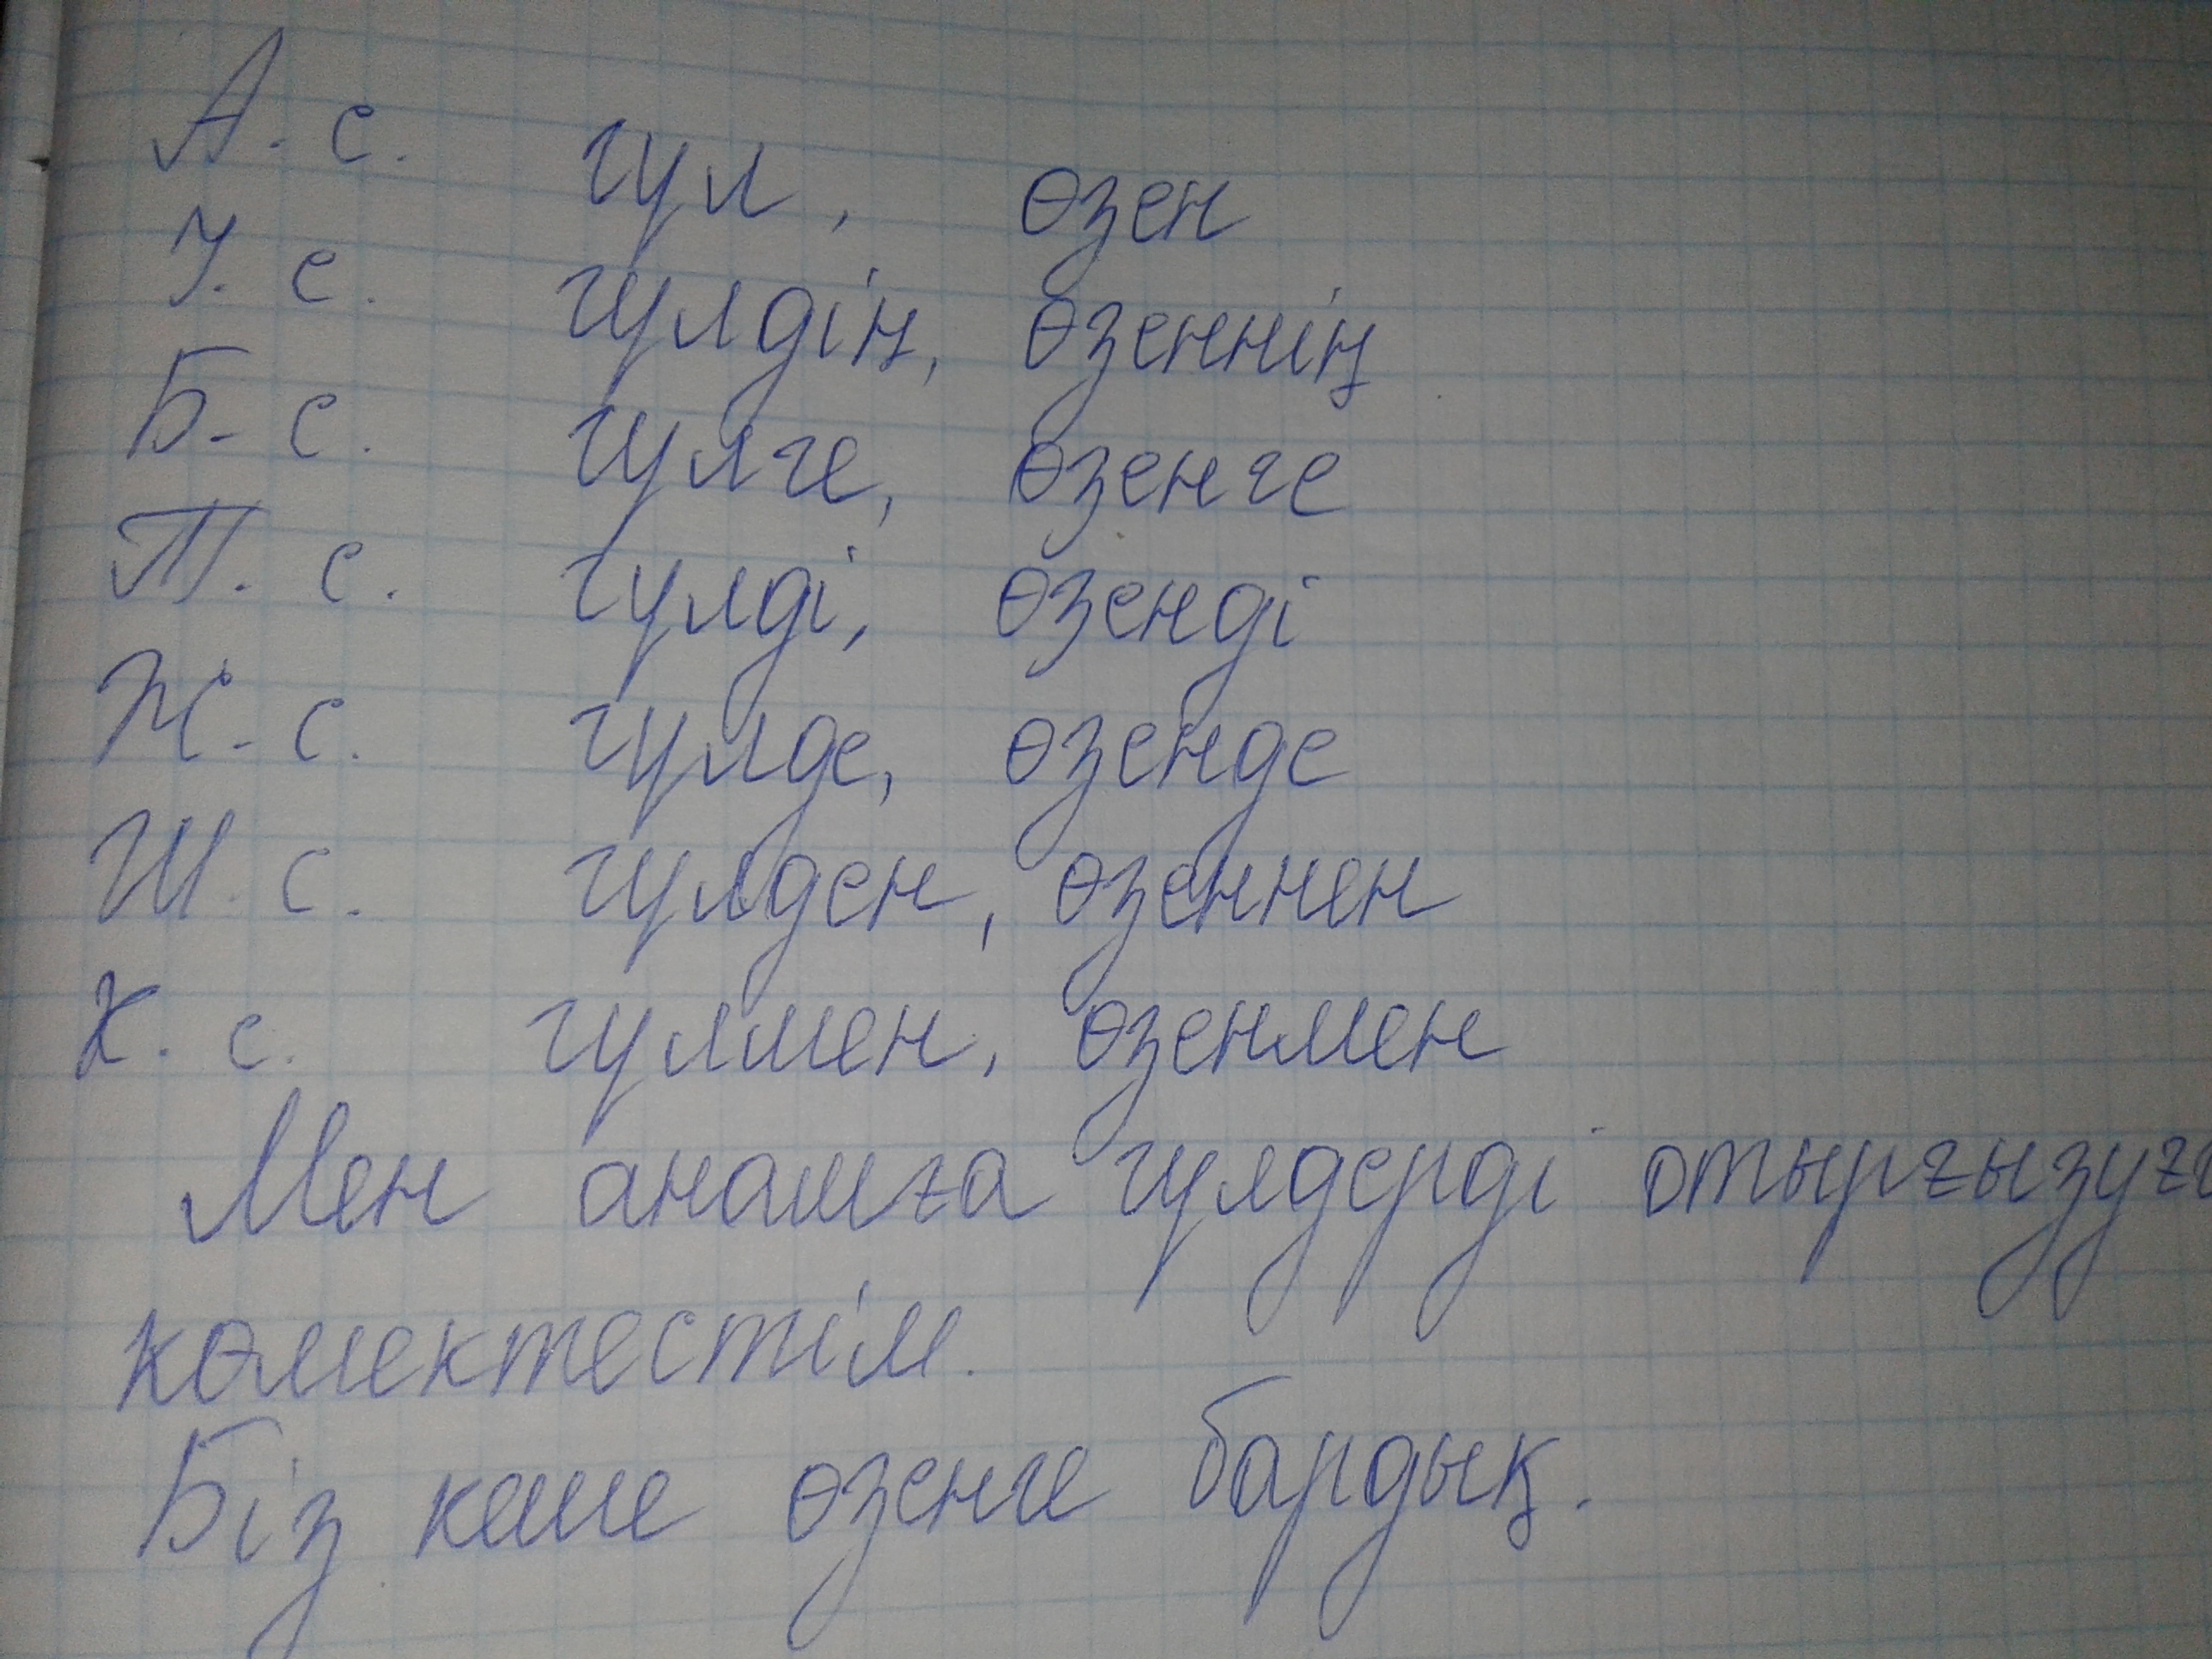 А. с. гүл, өзен
І. с. гүлдің, өзеннің
Б. с. гүлге, өзенге
Т. с. гүлді, өзенді
Ж. с. гүлде, өзенде
Ш. с. гүлден, өзеннен
К. с. гүлмен, өзенмен
Мен анамға гүлдерді отырғызуға
көмектестім.
Біз кеше өзенге бардық.